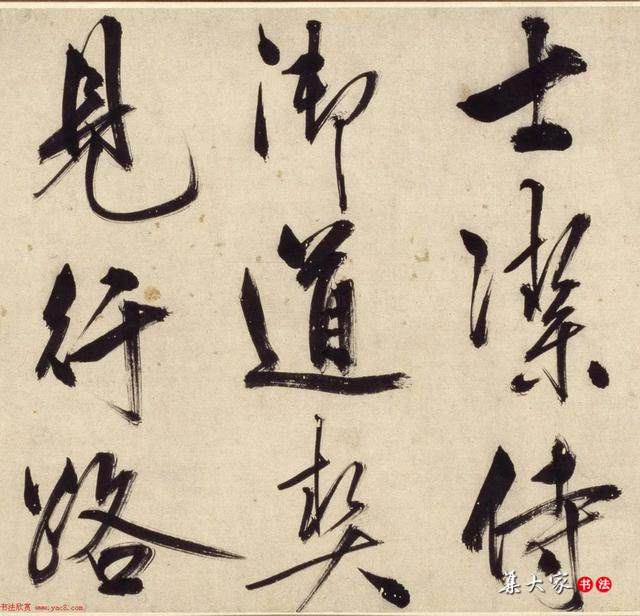 士潔侍
御道契
見行路
集大家 书法
书法欣赏 www.yac8.com